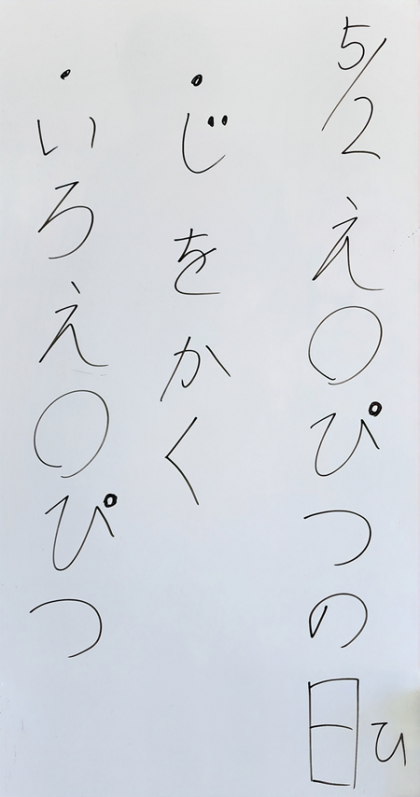 5/2 え〇ぴつの日
ひ
・じをかく
・いろえ〇ぴつ